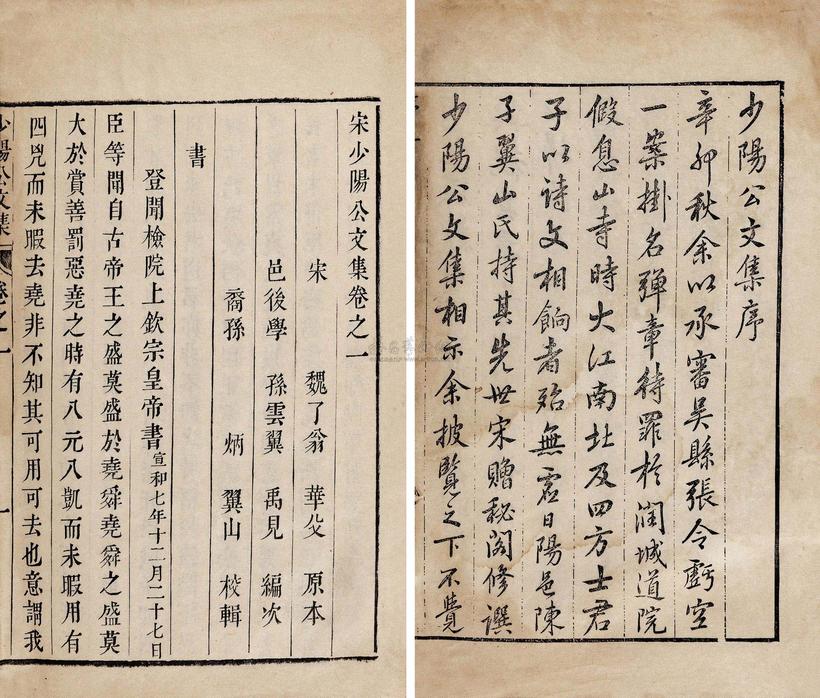 少陽公文集序
辛卯秋余以承審吳縣張令虧空
一案掛名彈章待罪於潤城道院
假息山寺時大江南北及四方士君
子以詩文相餉者殆無虛日陽邑陳
子翼山氏持其先世宋贈秘閣修譔
少陽公文集相示余披覽之下不覺
宋少陽公文集卷之一
宋 魏了翁 華父 原本
邑後學 孫雲翼 禹見 編次
裔孫 炳 翼山 校輯
書
登聞檢院上欽宗皇帝書 宣和七年十二月二十七日
臣等聞自古帝王之盛莫盛於堯舜堯舜之盛莫
大於賞善罰惡堯之時有八元八凱而未暇用有
四兇而未暇去堯非不知其可用可去也意謂我
少陽公文集 卷之一 一